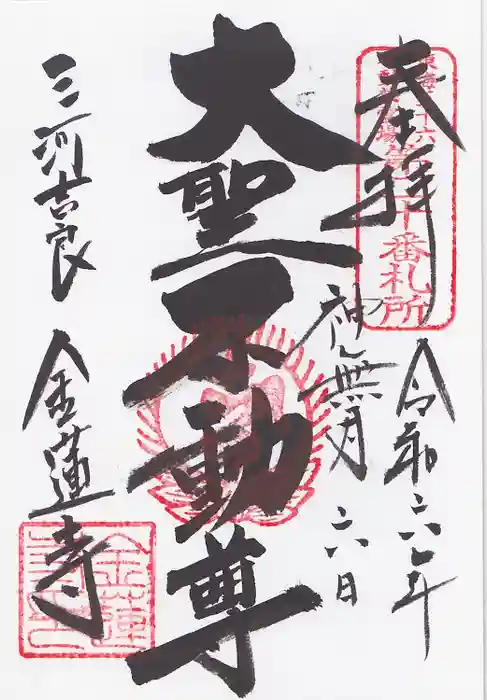 奉拝
第二十番札所
令和六年
神無月 六日
大聖不動尊
三河吉良
金蓮寺